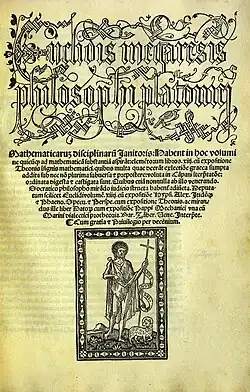 Euclidis megaresis
philosophi platonici
Mathematicaruz disciplinarũ Janitoris: Habent in hoc volumi
ne quicũqʒ ad mathematicã substantiã aspirãt: elemẽtorum libros .xiij. cũ expositione
Theonis insignis mathematici. quibus multa quae deerãt ex lectiõe graeca sumpta
addita sũt nec nõ plurima subuersa & prepostere: voluta in Cãpani iterpretatiõe:
ordinata digesta & castigata sunt. Quibus etiã nonnulla ab illo venerando
Socratico philosopho mirãdo iudicio structa habent᷑ adiũcta. Deputa
tum scilicet Euclidi volumẽ .xiiij. cũ expositiõe Hypsi. Alex. Itidẽqʒ
& Phaeno. Specu. & Perspe. cum expositione Theonis. ac miran
dus ille liber Datorʒ cum expositiõe Pappi Mechanici vna cũ
Marini dialectici protheoria. Bar. Zaber. Vene. Interpte.
Cum gratia & Priuilegio per decenium.